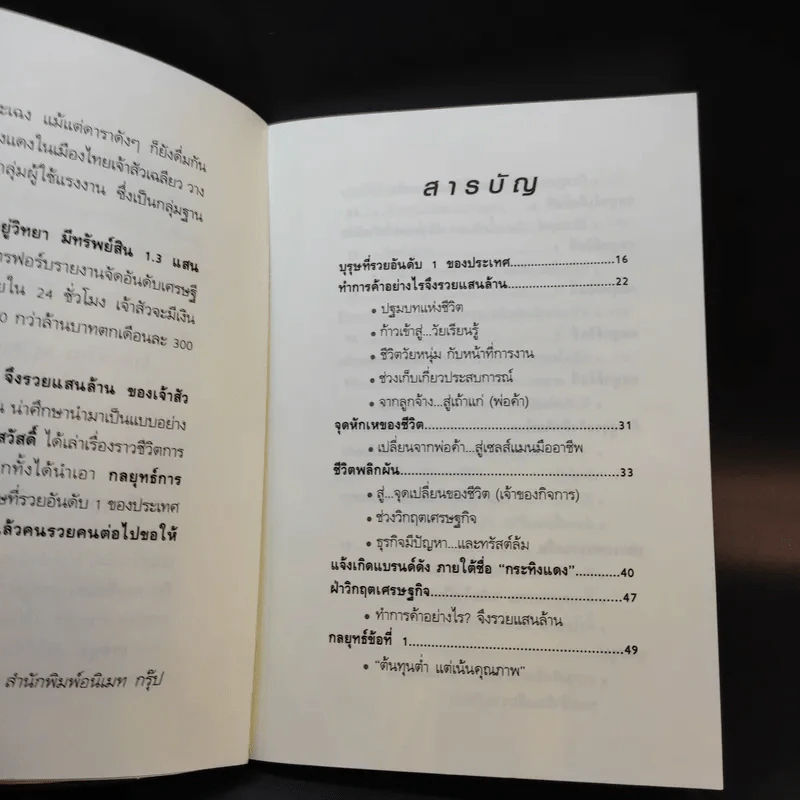 ะเฉง แม้แต่ดาราดังๆ ก็ยังดื่มกัน
งแดงในเมืองไทยเจ้าสัวเฉลียว วาง
ลุ่มผู้ใช้แรงงาน ซึ่งเป็นกลุ่มฐาน
อยู่วิทยา มีทรัพย์สิน 1.3 แสน
ารฟอร์บรายงานจัดอันดับเศรษฐี
ยใน 24 ชั่วโมง เจ้าสัวจะมีเงิน
0 กว่าล้านบาทตกเดือนละ 300
จึงรวยแสนล้าน ของเจ้าสัว
น น่าศึกษานำมาเป็นแบบอย่าง
สวัสดิ์ ได้เล่าเรื่องราวชีวิตการ
กทั้งได้นำเอา กลยุทธ์การ
ษที่รวยอันดับ 1 ของประเทศ
แล้วคนรวยคนต่อไปขอให้
สำนักพิมพ์อนิเมท กรุ๊ป
สารบัญ
บุรุษที่รวยอันดับ 1 ของประเทศ....................16
ทำการค้าอย่างไรจึงรวยแสนล้าน....................22
• ปฐมบทแห่งชีวิต
• ก้าวเข้าสู่...วัยเรียนรู้
• ชีวิตวัยหนุ่ม กับหน้าที่การงาน
• ช่วงเก็บเกี่ยวประสบการณ์
• จากลูกจ้าง...สู่เถ้าแก่ (พ่อค้า)
จุดหักเหของชีวิต....................31
• เปลี่ยนจากพ่อค้า...สู่เซลส์แมนมืออาชีพ
ชีวิตพลิกผัน....................33
• สู่...จุดเปลี่ยนของชีวิต (เจ้าของกิจการ)
• ช่วงวิกฤตเศรษฐกิจ
• ธุรกิจมีปัญหา...และทรัสต์ล้ม
แจ้งเกิดแบรนด์ดัง ภายใต้ชื่อ "กระทิงแดง"............40
ฝ่าวิกฤตเศรษฐกิจ....................47
• ทำการค้าอย่างไร? จึงรวยแสนล้าน
กลยุทธ์ข้อที่ 1....................49
• "ต้นทุนต่ำ แต่เน้นคุณภาพ"